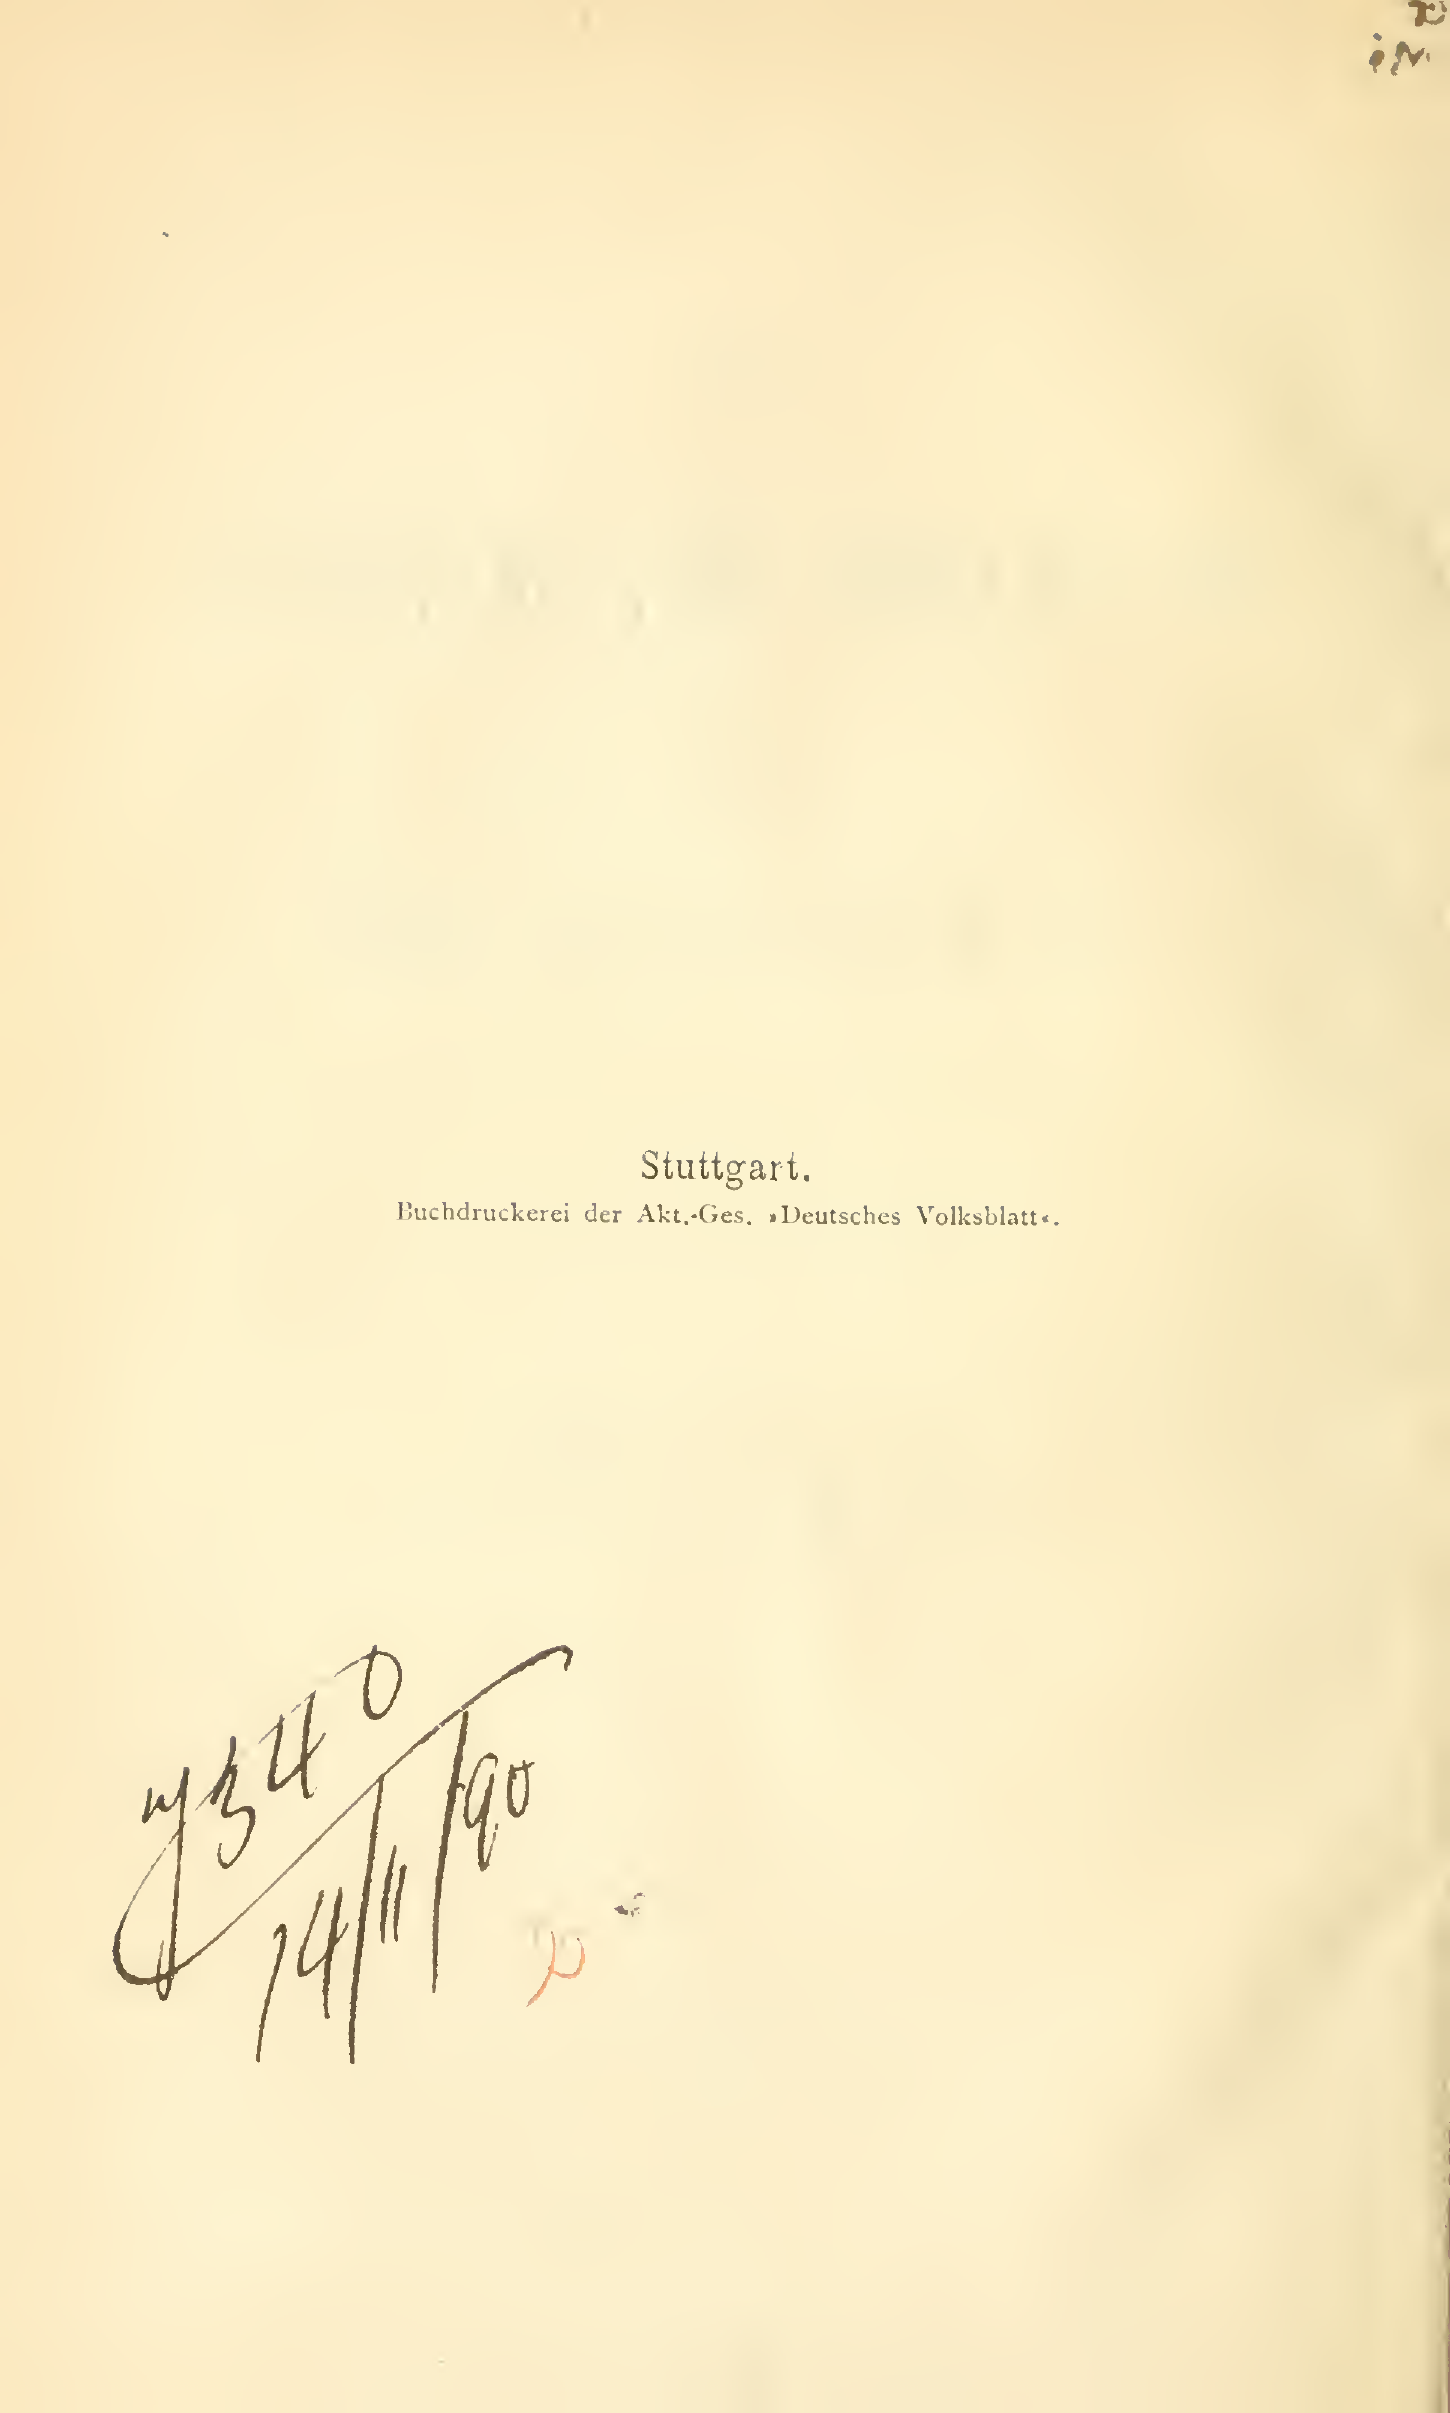 Stuttgart.
Buchdruckerei der Akt.-Ges. »Deutsches Volksblatt«.
y340
14/11/90